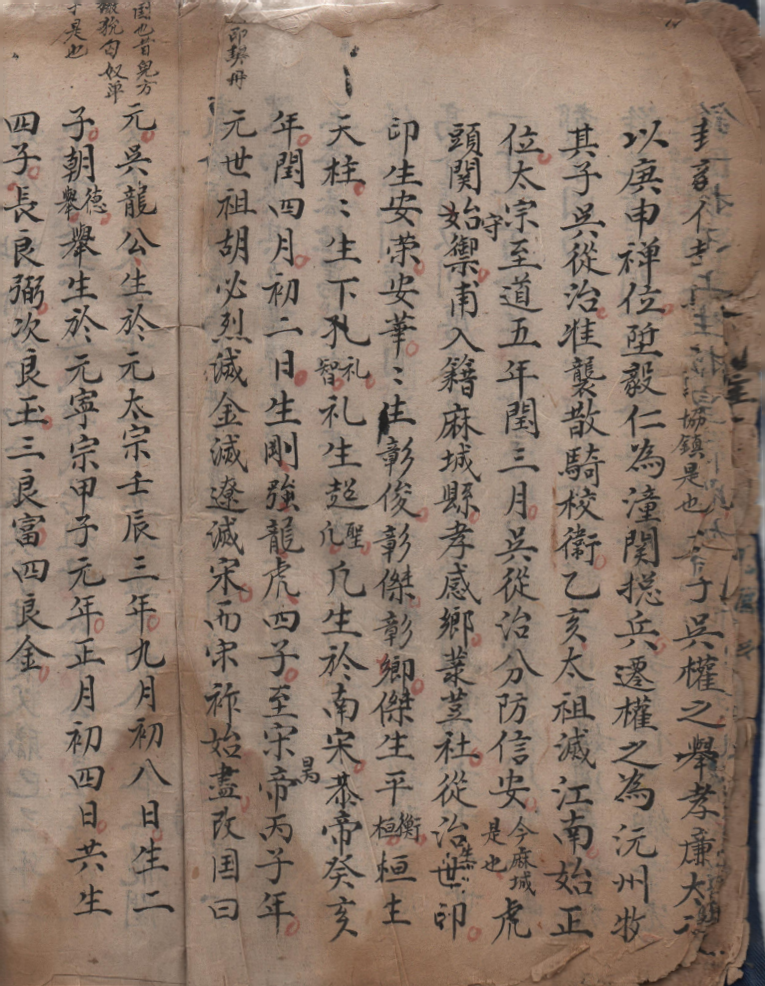 是也
子吳權之舉孝廉太
協鎮是也
以庚申禅位陞毅仁為潼関揔兵遷權之為沅州牧
其子吳從治准襲散騎校衛乙亥太祖滅江南始正
位太宗至道五年閏三月吳從治分防信安今麻城是也虎
頭関始守禦甫入籍麻城縣孝感鄉菉荳社從治生世印
印生安荣安華〻生彰俊彰傑彰卿傑生平衡桓桓生
天柱〻生下孔礼智礼生超聖凡凡生於南宋恭帝癸亥
年閏四月初二日生剛強龍虎四子至宋帝昺丙子年
元世祖胡必烈滅金滅遼滅宋而宋祚始盡改国曰
元吳龍公生於元太宗壬辰三年九月初八日生二
子朝德舉舉生於元寧宗甲子元年正月初四日共生
四子長良弼次良玉三良富四良金